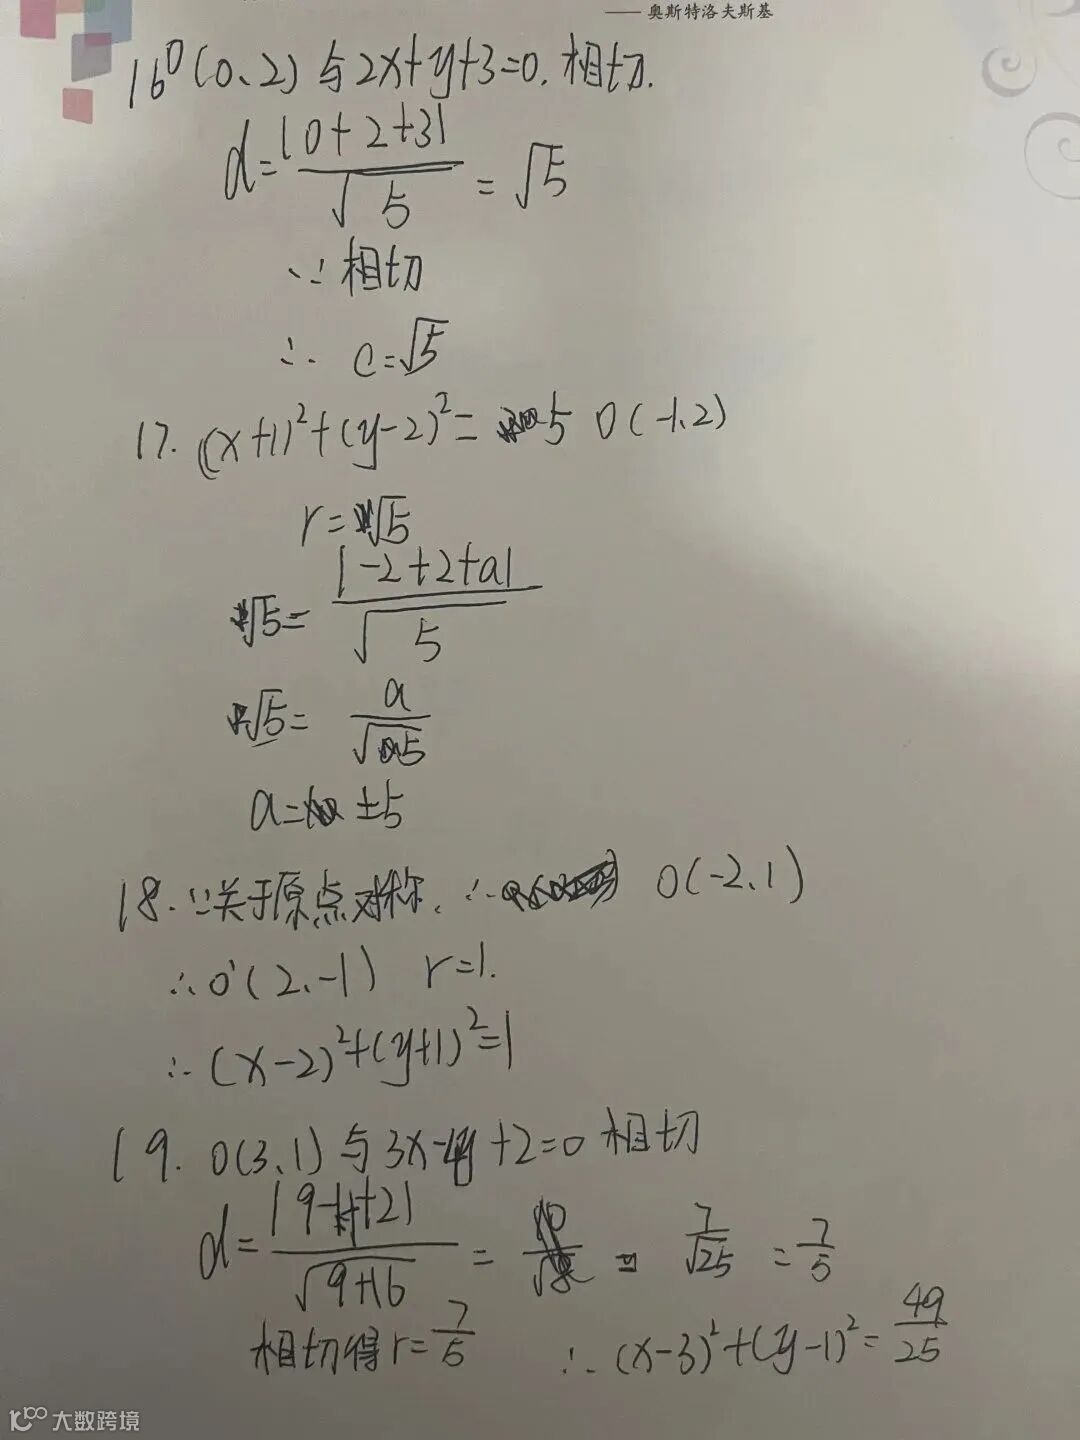 —— 奥斯特洛夫斯基
16 O(0、2) 与2x+y+3=0. 相切.
d=|0+2+3|/√5 = √5
∵ 相切
∴ c=√5
17. (x+1)²+(y-2)²= 5 O(-1、2)
r=√5
√5=|-2+2+a|/√5
√5= a/√5
a= ±5
18. ∵关于原点对称. ∴ O(-2、1)
∴O'(2、-1) r=1.
∴(x-2)²+(y+1)²=1
19. O(3、1)与3x-4y+2=0 相切
d=|9-4+2|/√9+16 = = 7/√25 = 7/5
相切得r=7/5 ∴(x-3)²+(y-1)²=49/25
大数跨境